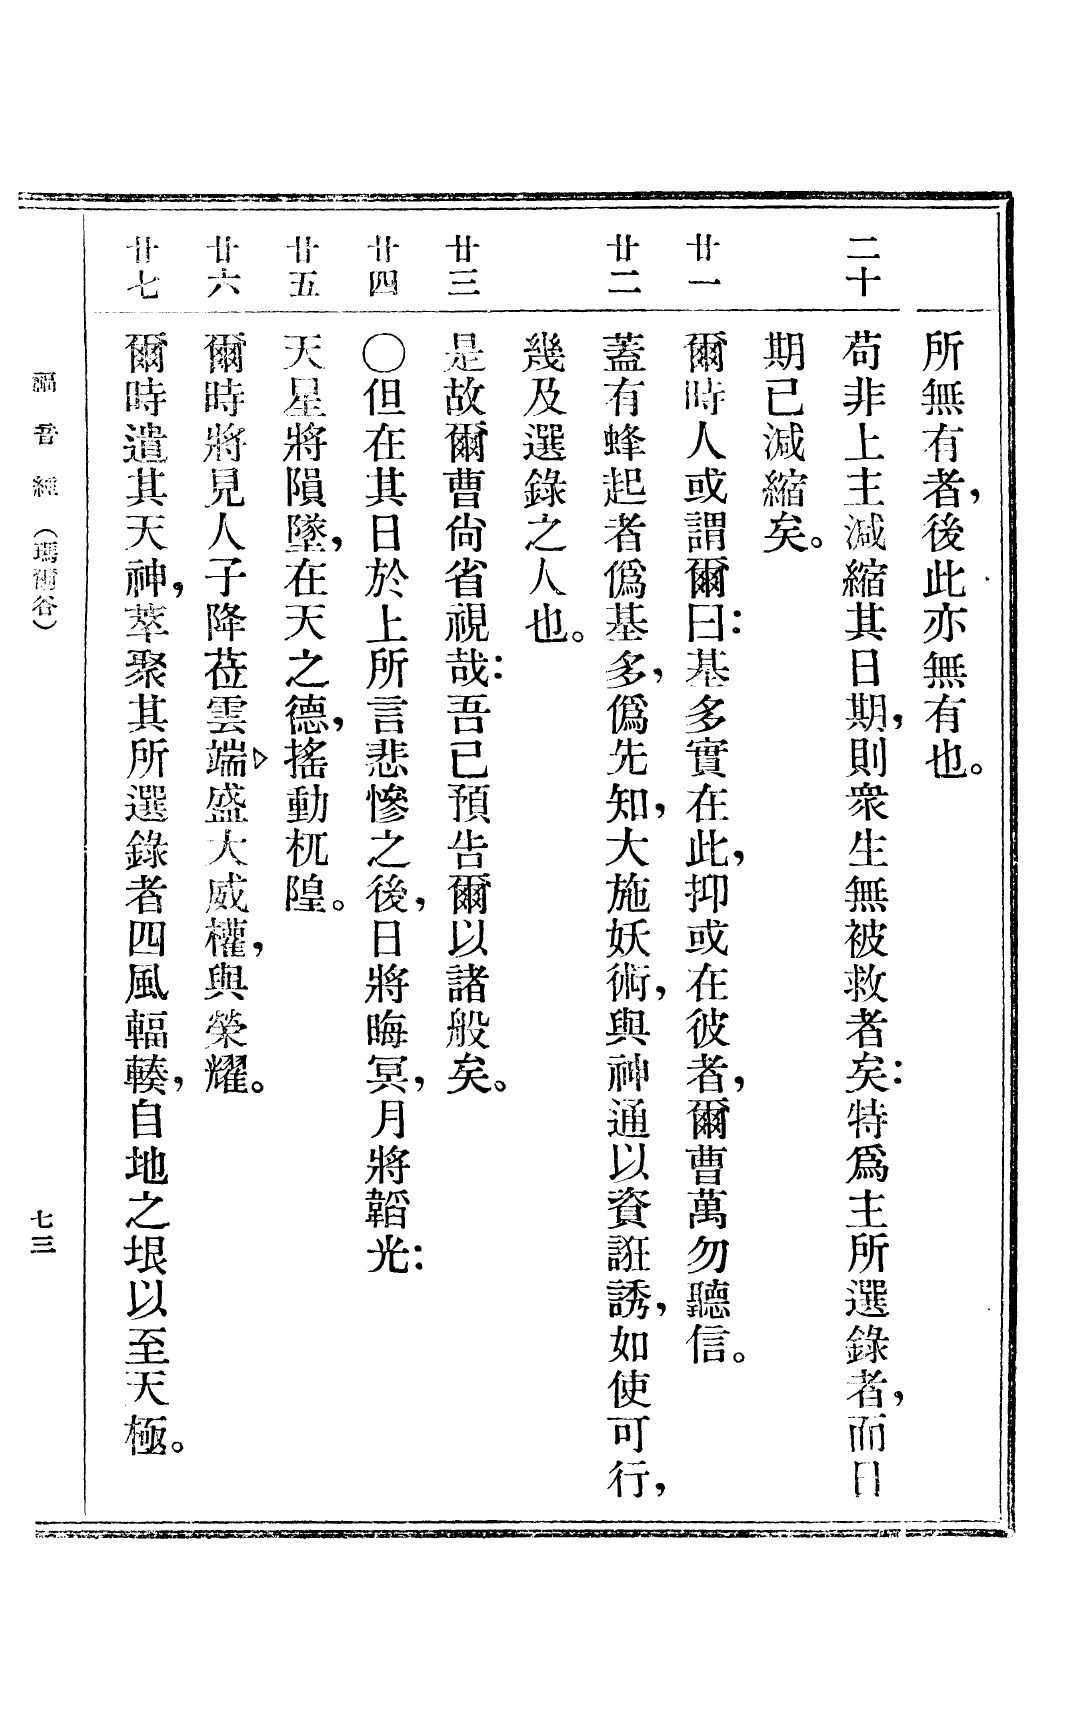 所無有者，後此亦無有也。
二十
苟非上主減縮其日期，則衆生無被救者矣：特爲主所選錄者，而日
期已減縮矣。
廿一
爾時人或謂爾曰：基多實在此，抑或在彼者，爾曹萬勿聽信。
廿二
蓋有蜂起者僞基多，僞先知，大施妖術，與神通以資誑誘，如使可行，
幾及選錄之人也。
廿三
是故爾曹尙省視哉：吾已預告爾以諸般矣。
廿四
〇但在其日於上所言悲慘之後，日將晦冥，月將韜光：
廿五
天星將隕墜，在天之德，搖動杌隉。
廿六
爾時將見人子降莅雲端，盛大威權，與榮耀。
廿七
爾時遣其天神，萃聚其所選錄者四風輻輳，自地之垠以至天極。
福音經（瑪爾谷）
七三